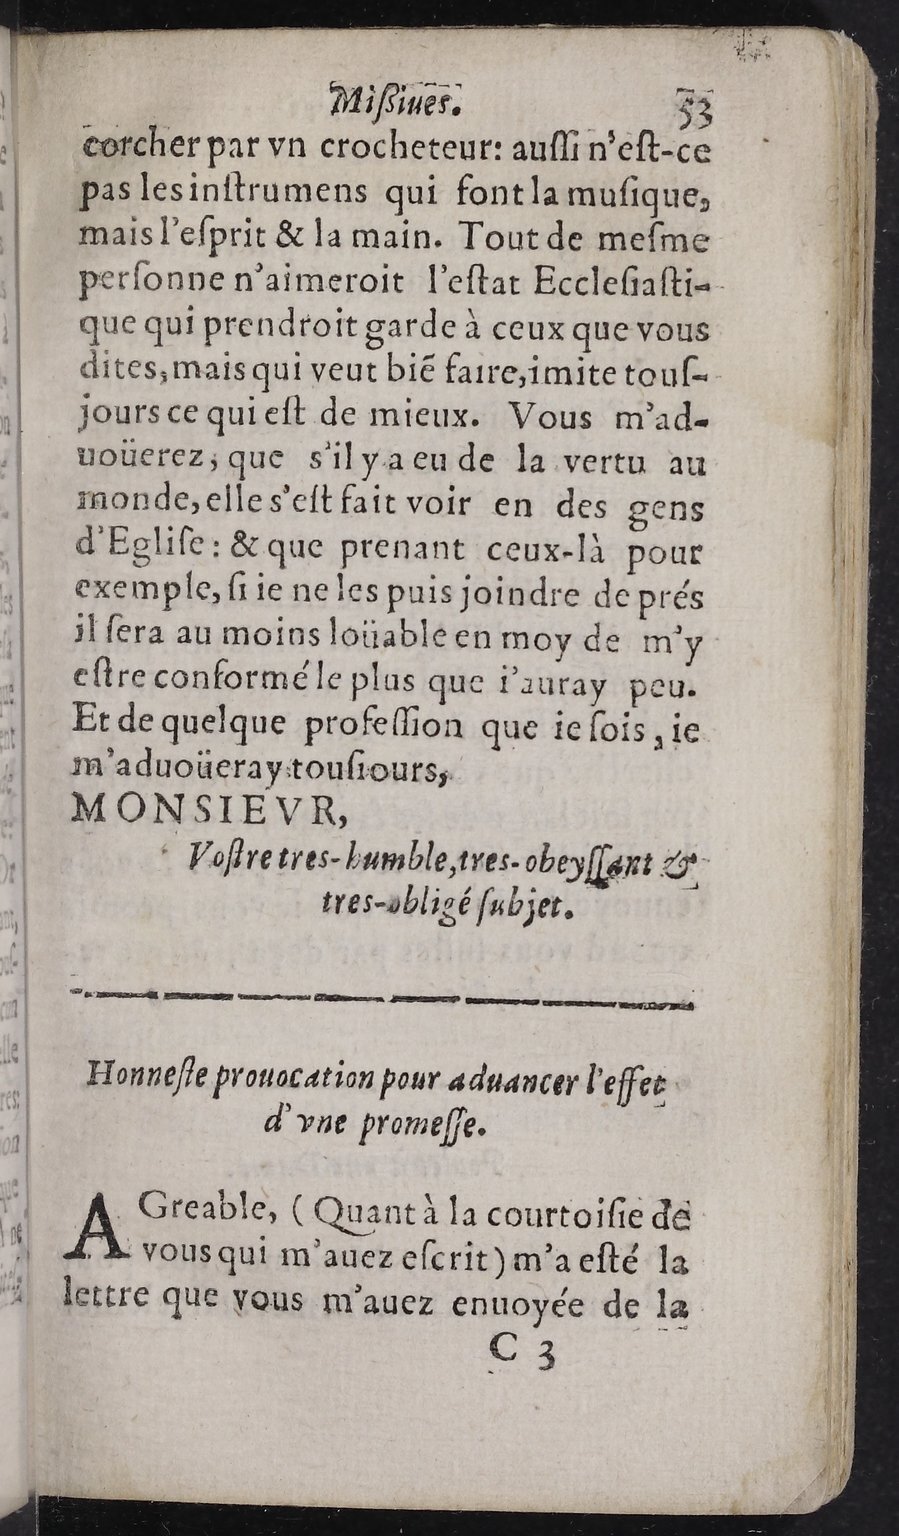 Miſſiues. 53
corcher par vn crocheteur: auſſi n'eſt-ce
pas les inſtrumens qui font la muſique,
mais l'eſprit & la main. Tout de meſme
perſonne n'aimeroit l'eſtat Eccleſiaſti-
que qui prendroit garde à ceux que vous
dites, mais qui veut biẽ faire, imite touſ-
jours ce qui eſt de mieux. Vous m'ad-
uoüerez, que s'il y a eu de la vertu au
monde, elle s'eſt fait voir en des gens
d'Egliſe: & que prenant ceux-là pour
exemple, ſi ie ne les puis joindre de prés
il ſera au moins loüable en moy de m'y
eſtre conformé le plus que i'auray peu.
Et de quelque profeſſion que ie ſois, ie
m'aduoüeray touſiours,
MONSIEVR,
Voſtre tres-humble, tres-obeyſſant &
tres-obligé ſubjet.
Honneſte prouocation pour aduancer l'effet
d'vne promeſſe.
AGreable, (Quant à la courtoiſie de
vous qui m'auez eſcrit) m'a eſté la
lettre que vous m'auez enuoyée de la
C 3